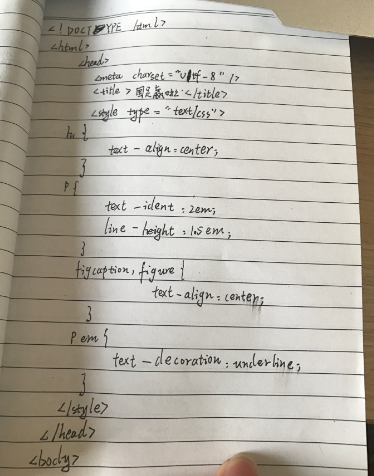 <!DOCTYPE html>
<html>
<head>
<meta charset="utf-8"/>
<title>国足赢</title>
<style type="text/css">
h1 {
text-align:center;
}
P{
text-ident:2em;
line-height:1.5em;
}
figcaption,figure{
text-align:center;
}
P em{
text-decoration:underline;
}
</style>
</head>
<body>